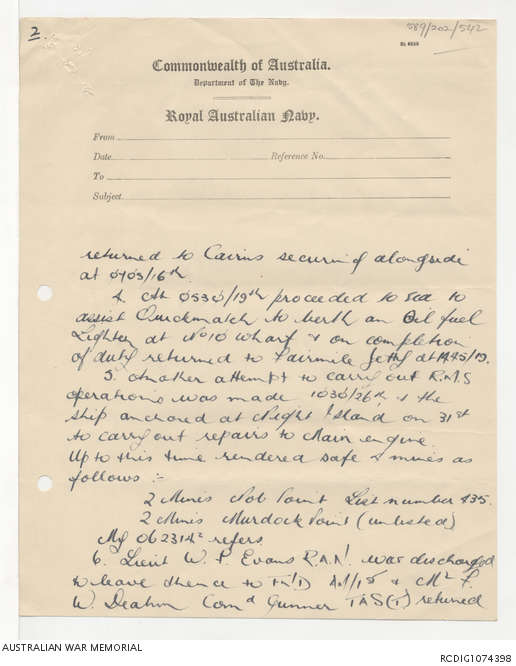 2.
589/202/542
Commonwealth of Australia.
Department of The Navy.
Royal Australian Navy.
From
Date Reference No.
To
Subject
returned to Cairns securing alongside
at 0703/16th.
4. At 0530/19th proceeded to sea to
assist Quickmatch to berth an Oil fuel
Lighter at No 10 wharf & on completion
of duty returned to Fairmile Jetty at 1445/19.
5. Another attempt to carry out R.M.S
operations was made 1030/26th & the
ship anchored at Night Island on 31st
to carry out repairs to Main engine.
Up to this time rendered safe 4 mines as
follows :-
2 Mines Nob Point List number 435.
2 Mines Murdock Point (unlisted)
My 062314Z refers
6. Lieut W. P. Evans R.A.N. was discharged
to leave thence to & Mr
W. Comd Gunner TAS(I) returned
AUSTRALIAN WAR MEMORIAL
RCDIG1074398